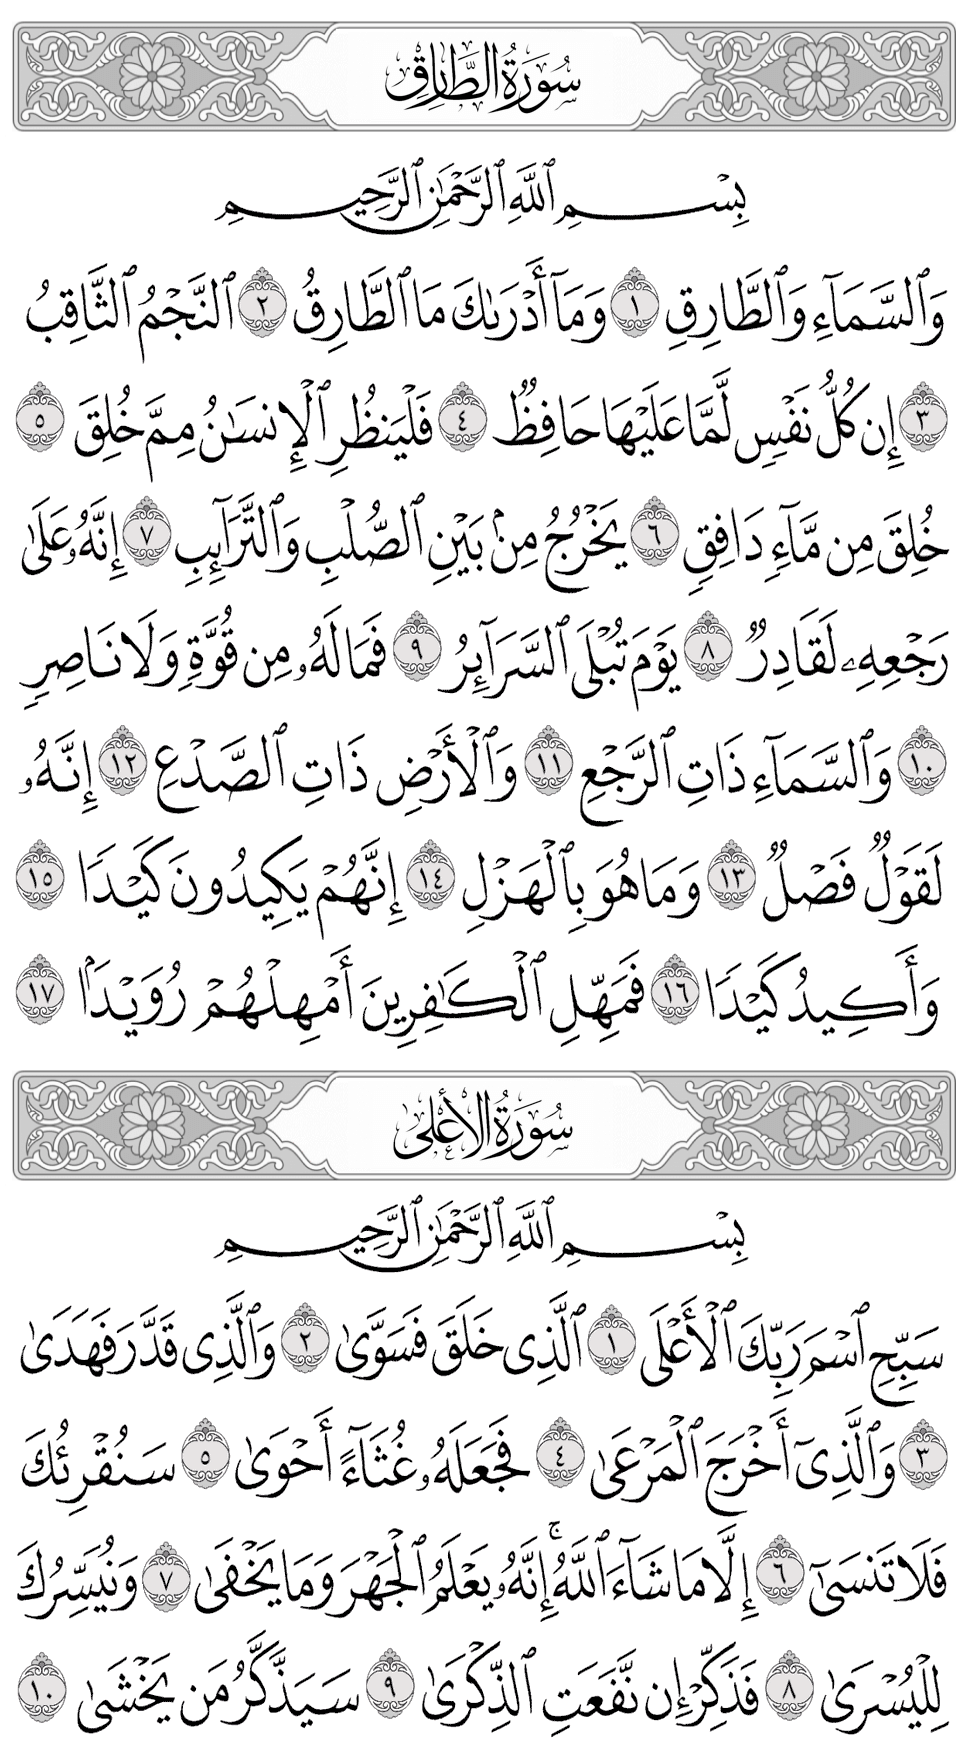 سُورَةُ الطَّارِقِ
بِسْمِ ٱللَّهِ ٱلرَّحْمَٰنِ ٱلرَّحِيمِ
وَٱلسَّمَآءِ وَٱلطَّارِقِ ١ وَمَآ أَدْرَىٰكَ مَا ٱلطَّارِقُ ٢ ٱلنَّجْمُ ٱلثَّاقِبُ
٣ إِن كُلُّ نَفْسٍ لَّمَّا عَلَيْهَا حَافِظٌ ٤ فَلْيَنظُرِ ٱلْإِنسَٰنُ مِمَّ خُلِقَ ٥
خُلِقَ مِن مَّآءٍ دَافِقٍ ٦ يَخْرُجُ مِنۢ بَيْنِ ٱلصُّلْبِ وَٱلتَّرَآئِبِ ٧ إِنَّهُۥ عَلَىٰ
رَجْعِهِۦ لَقَادِرٌ ٨ يَوْمَ تُبْلَى ٱلسَّرَآئِرُ ٩ فَمَا لَهُۥ مِن قُوَّةٍ وَلَا نَاصِرٍ
١٠ وَٱلسَّمَآءِ ذَاتِ ٱلرَّجْعِ ١١ وَٱلْأَرْضِ ذَاتِ ٱلصَّدْعِ ١٢ إِنَّهُۥ
لَقَوْلٌ فَصْلٌ ١٣ وَمَا هُوَ بِٱلْهَزْلِ ١٤ إِنَّهُمْ يَكِيدُونَ كَيْدًا ١٥
وَأَكِيدُ كَيْدًا ١٦ فَمَهِّلِ ٱلْكَٰفِرِينَ أَمْهِلْهُمْ رُوَيْدًۢا ١٧
سُورَةُ الأَعْلَىٰ
بِسْمِ ٱللَّهِ ٱلرَّحْمَٰنِ ٱلرَّحِيمِ
سَبِّحِ ٱسْمَ رَبِّكَ ٱلْأَعْلَى ١ ٱلَّذِى خَلَقَ فَسَوَّىٰ ٢ وَٱلَّذِى قَدَّرَ فَهَدَىٰ
٣ وَٱلَّذِىٓ أَخْرَجَ ٱلْمَرْعَىٰ ٤ فَجَعَلَهُۥ غُثَآءً أَحْوَىٰ ٥ سَنُقْرِئُكَ
فَلَا تَنسَىٰٓ ٦ إِلَّا مَا شَآءَ ٱللَّهُ ۚ إِنَّهُۥ يَعْلَمُ ٱلْجَهْرَ وَمَا يَخْفَىٰ ٧ وَنُيَسِّرُكَ
لِلْيُسْرَىٰ ٨ فَذَكِّرْ إِن نَّفَعَتِ ٱلذِّكْرَىٰ ٩ سَيَذَّكَّرُ مَن يَخْشَىٰ ١٠